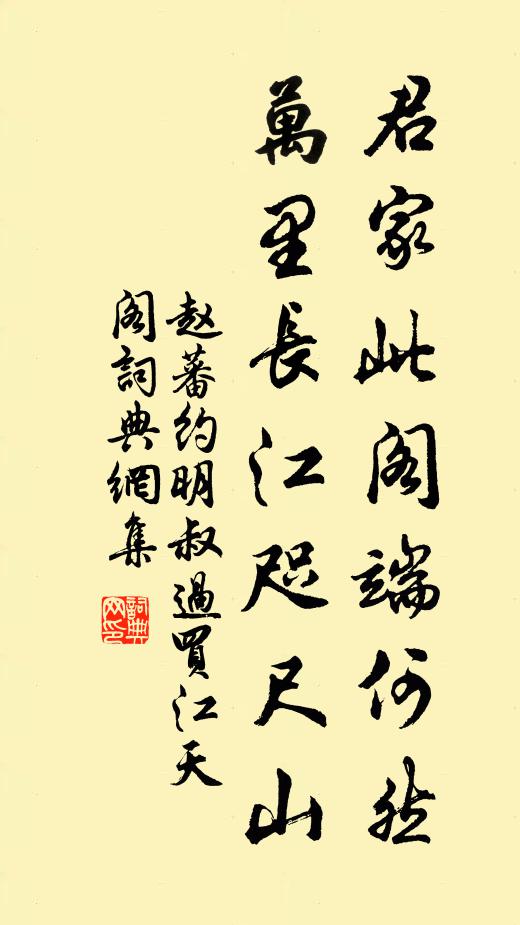 君家此阁端何然
萬里長江咫尺山
赵蕃约明叔過買江天
阁詞典網集
詞典网印